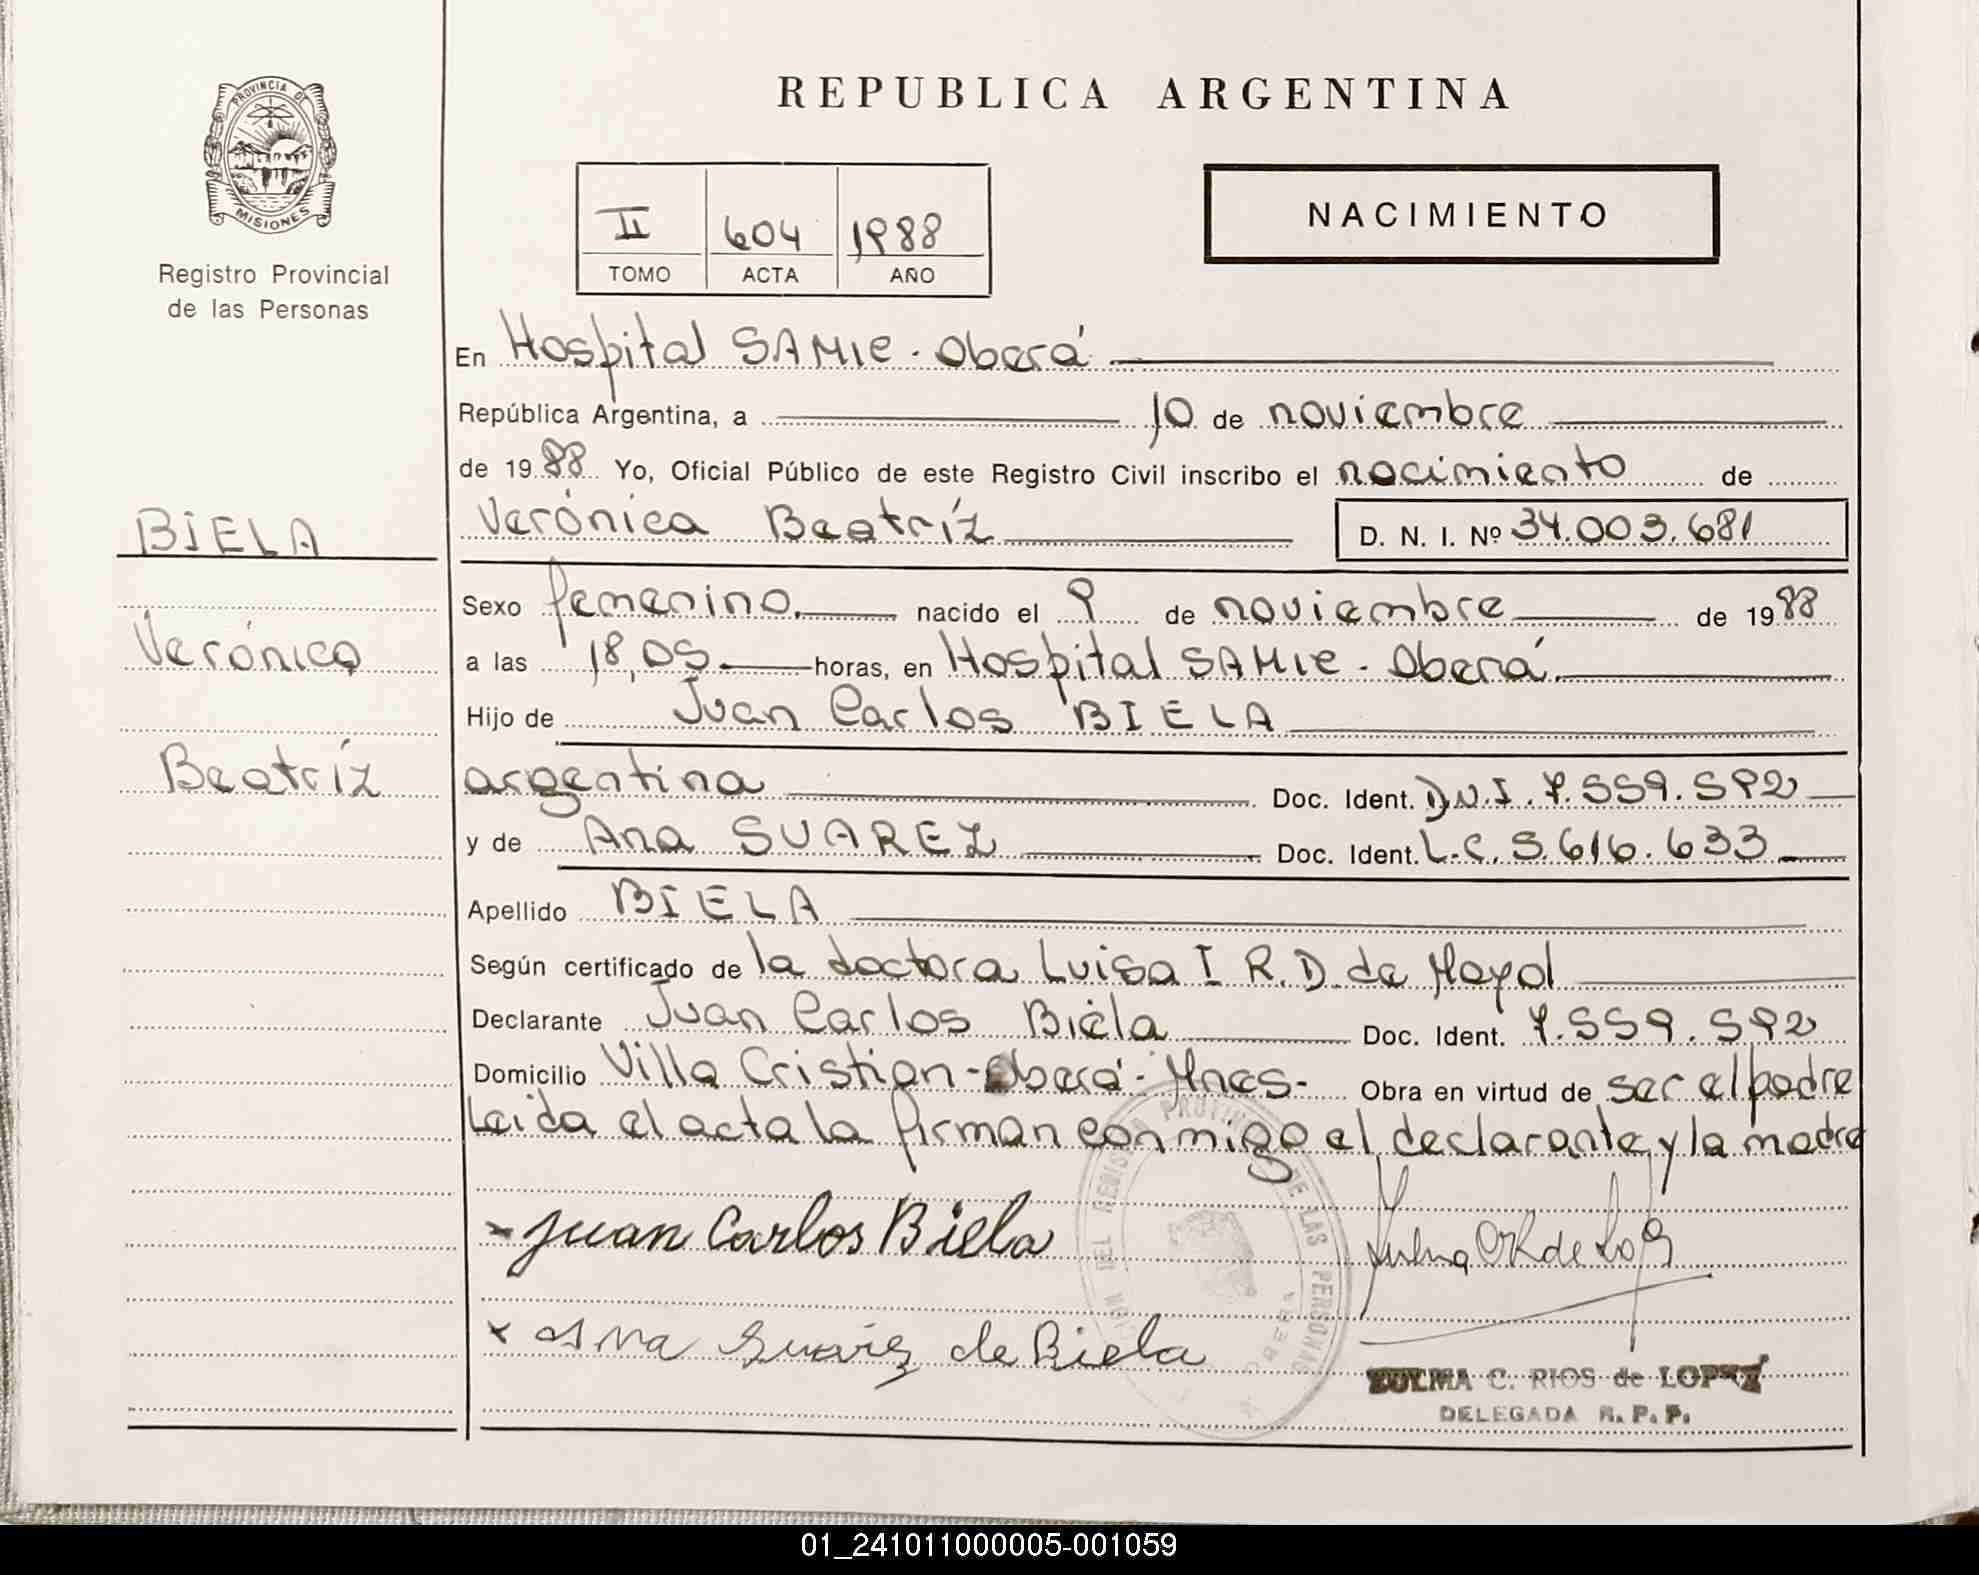 REPUBLICA ARGENTINA
PROVINCIA DE
MISIONES
Registro Provincial
de las Personas
NACIMIENTO
II 604 1988
TOMO ACTA AÑO
En Hospital SAMIC - Oberá
República Argentina, a 10 de noviembre
de 1988 Yo, Oficial Público de este Registro Civil inscribo el nacimiento de
Verónica Beatríz D. N. I. Nº 34.003.681
BIELA
Verónica
Beatríz
Sexo femenino. nacido el 9 de noviembre de 1988
a las 18,05 horas, en Hospital SAMIC - Oberá.
Hijo de Juan Carlos BIELA
argentina Doc. Ident. D.N.I. 7.559.592
y de Ana SUAREZ Doc. Ident. L.C. 5.616.633
Apellido BIELA
Según certificado de la doctora Luisa I R. D. de Mayol
Declarante Juan Carlos Biela Doc. Ident. 7.559.592
Domicilio Villa Cristian - Oberá - Mnes - Obra en virtud de ser el padre
Leida el acta la firman conmigo el declarante y la madre
x Juan Carlos Biela
x Ana Suarez de Biela
LAS PERSONAS
ZULMA C. RIOS de LOPEZ
DELEGADA R. P. P.
01_241011000005-001059